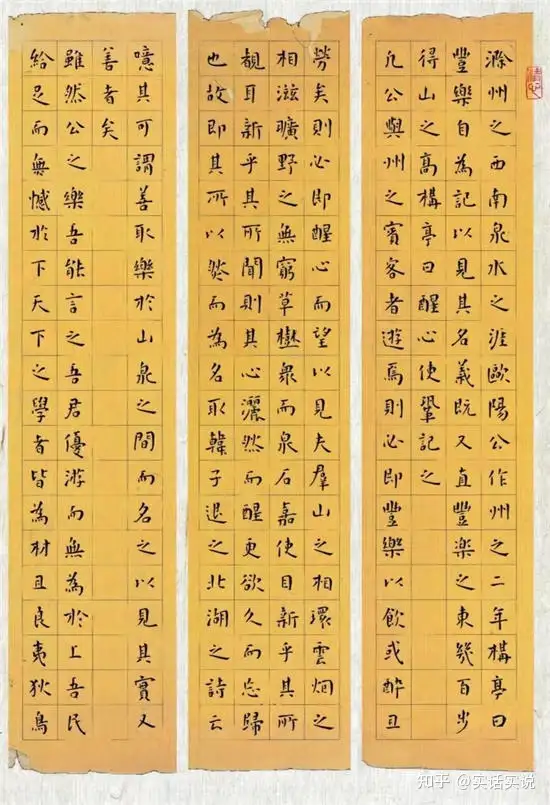 滁州之西南泉水之涯歐陽公作州之二年構亭曰
豐樂自為記以見其名義既又直豐楽之東幾百步
得山之高構亭曰醒心使鞏記之
凡公與州之賓客者遊焉則必即豐樂以飲或醉且
勞矣則必即醒心而望以見夫羣山之相環雲烟之
相滋曠野之無窮草樹衆而泉石嘉使目新乎其所
覩耳新乎其所聞則其心灑然而醒更欲久而忘歸
也故即其所以然而為名取韓子退之北湖之詩云
噫其可謂善取樂於山泉之間而名之以見其實又
善者矣
雖然公之樂吾能言之吾君優游而無為於上吾民
給足而無憾於下天下之學者皆為材且良夷狄鳥
知乎 @实话实说